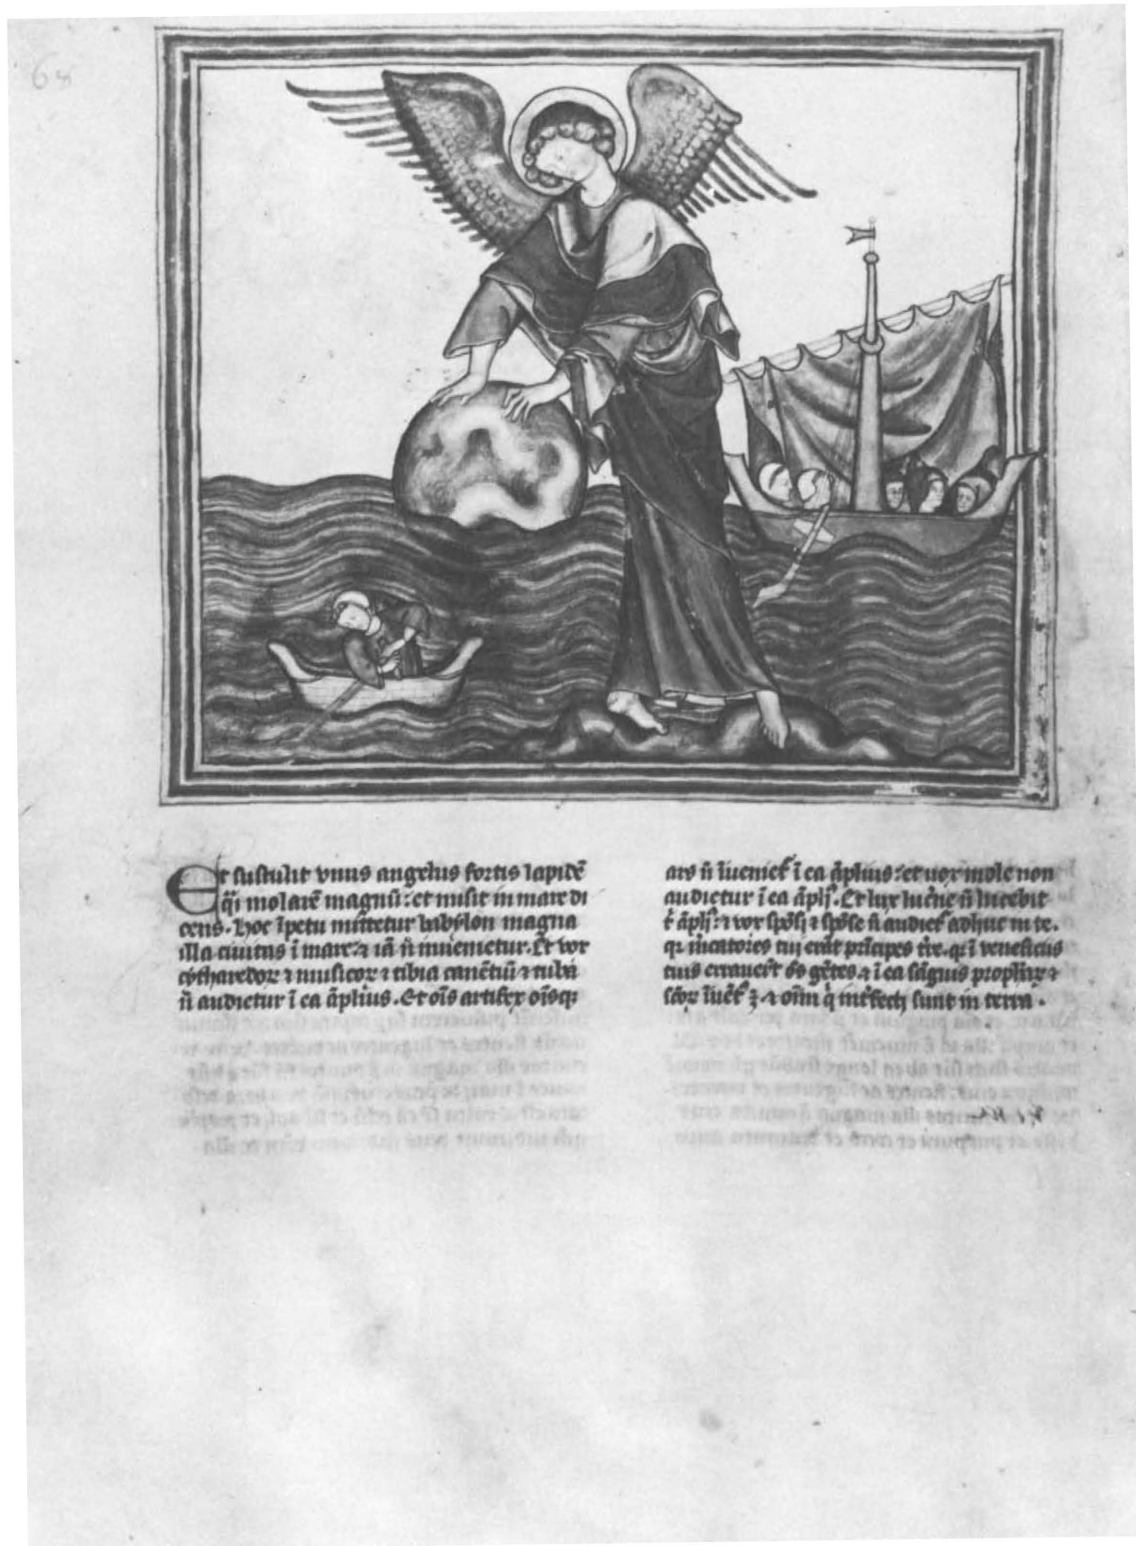 68
Et sustulit vnus angelus fortis lapidē
q̄i molarē magnū: et misit in mare di
cens. Hoc īpetu mittetur babylon magna
illa ciuitas ī mare: ⁊ iā n̄ inuenietur. Et vox
cytharedoꝝ ⁊ musicoꝝ ⁊ tibia canētiū ⁊ tuba
n̄ audietur ī ea āplius. Et oīs artifex oīsqꝫ
ars n̄ īuenietᷣ ī ea āplius: et uox mole non
audietur ī ea āplꝰ. Et lux luc̄ne n̄ lucebit
t̄ āplꝰ: ⁊ vox spōsi ⁊ spōse n̄ audietᷣ adhuc in te.
qꝛ m̄catores tui erāt prīcipes t̄re. qꝛ ī veneficiis
tuis errauer̄t oēs gētes. ⁊ ī ea sāguis prophꝝ ⁊
scōꝝ īuētꝰ ꝫ. ⁊ oīm q̇ int̄fecti sunt in terra.